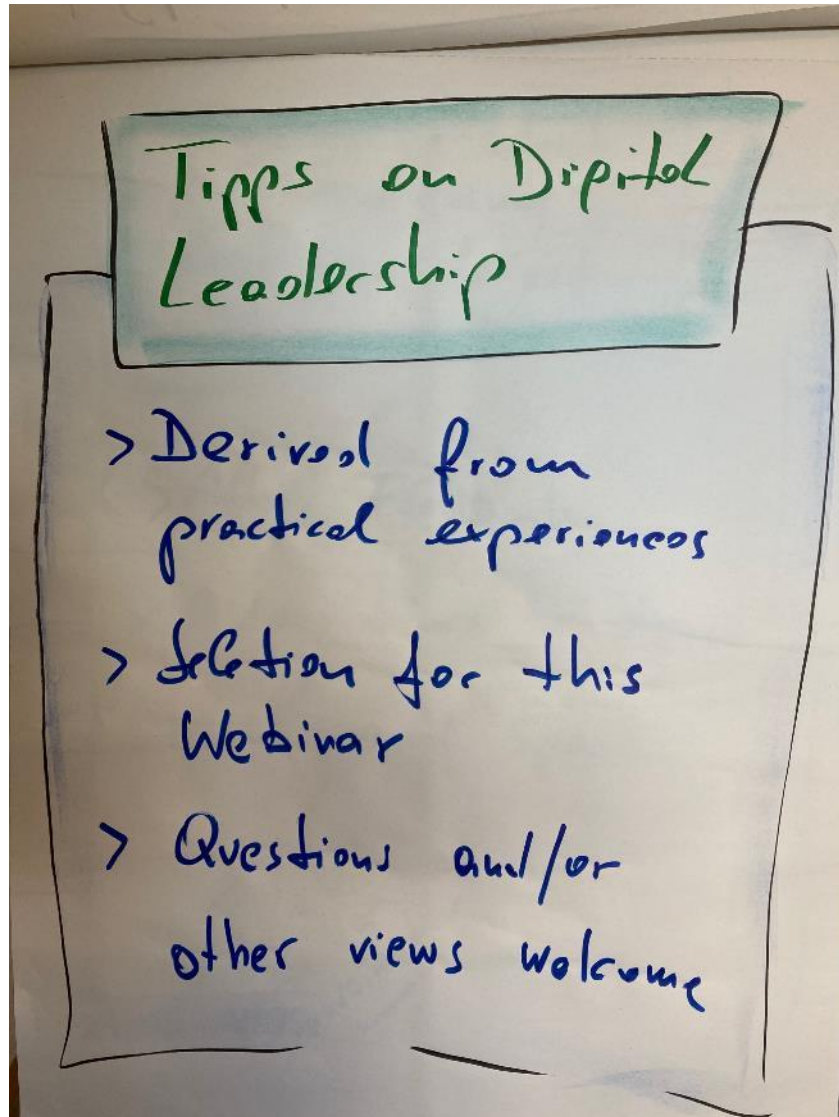 Tipps on Digital
Leadership
> Derived from
practical experiences
> Seletion for this
Webinar
> Questions and/or
other views welcome